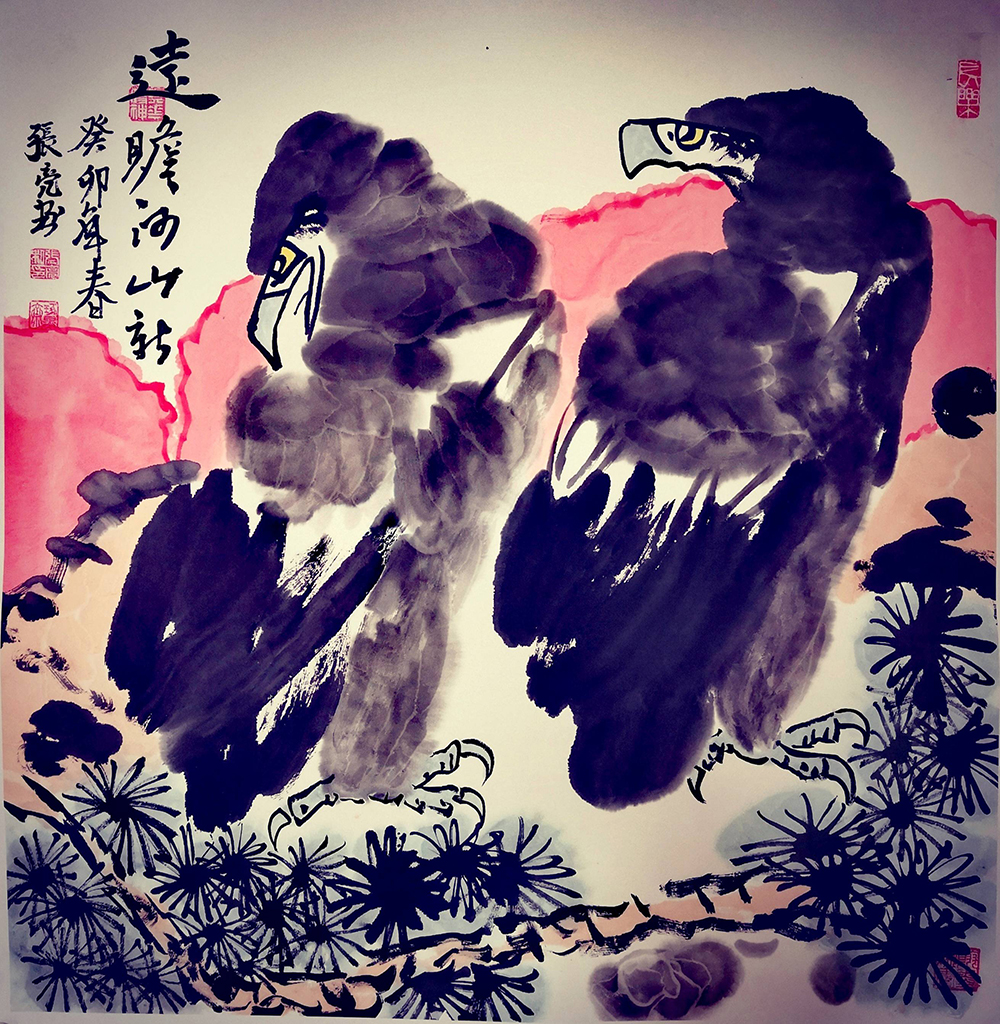 遠瞻河山新
癸卯年春
張亮畫